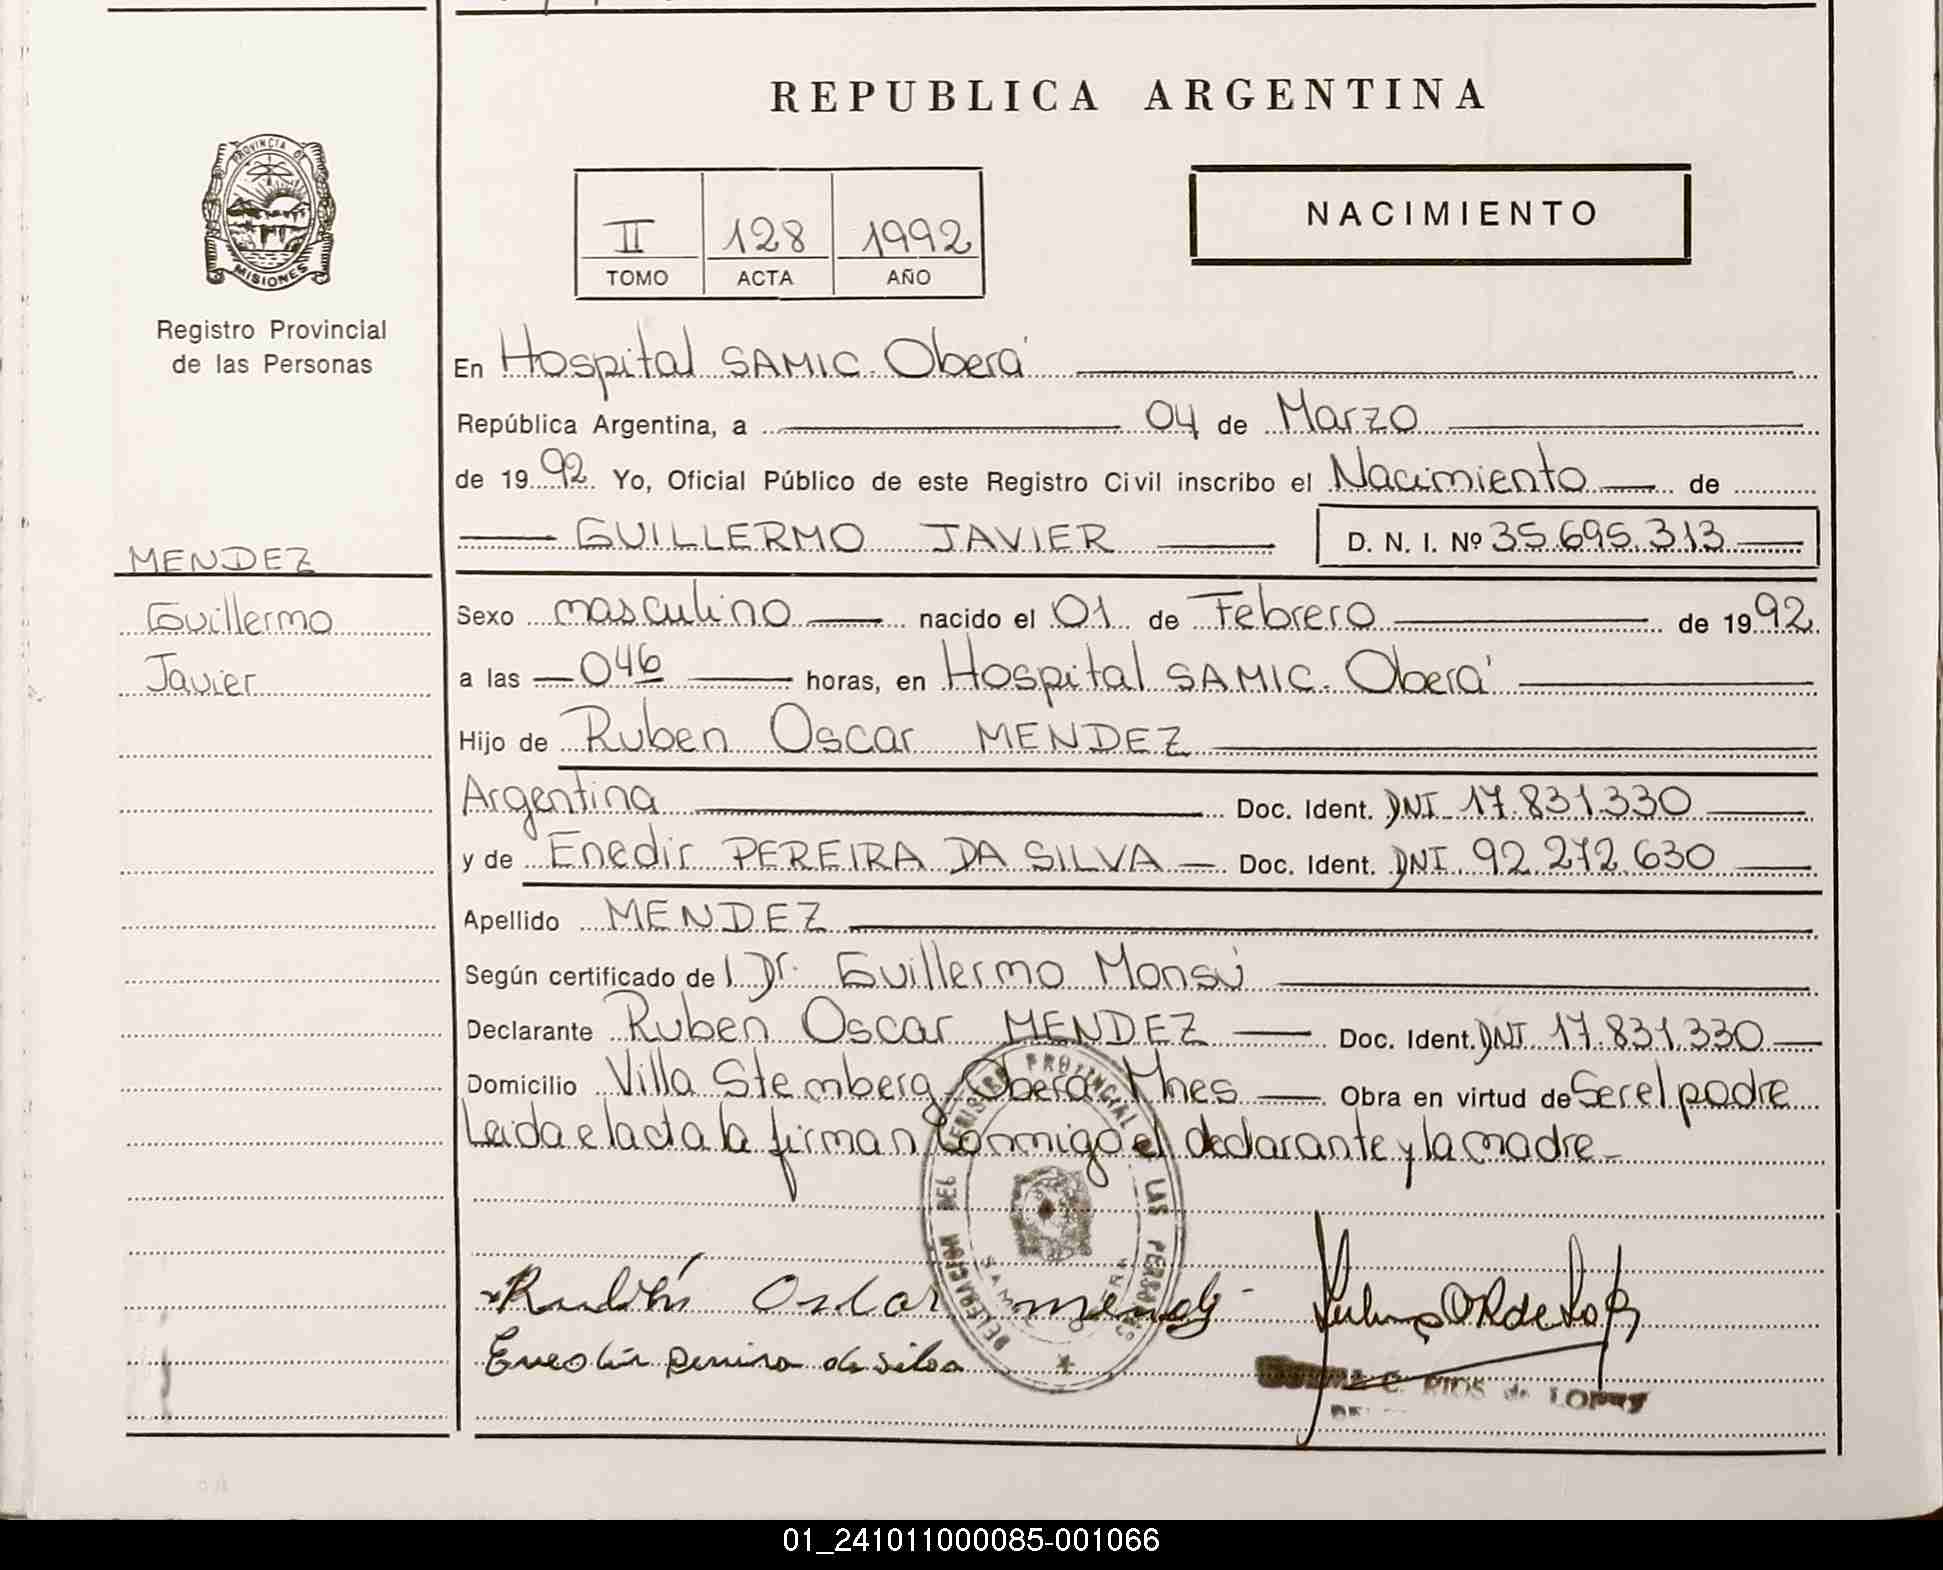 REPUBLICA ARGENTINA
PROVINCIA DE
MISIONES
Registro Provincial
de las Personas
II 128 1992
TOMO ACTA AÑO
NACIMIENTO
En Hospital SAMIC. Oberá
República Argentina, a 04 de Marzo
de 1992. Yo, Oficial Público de este Registro Civil inscribo el Nacimiento de
GUILLERMO JAVIER D. N. I. Nº 35.695.313
MENDEZ
Guillermo
Javier
Sexo masculino nacido el 01 de Febrero de 1992.
a las 046 horas, en Hospital SAMIC. Oberá
Hijo de Ruben Oscar MENDEZ
Argentina Doc. Ident. DNI 17.831.330
y de Enedir PEREIRA DA SILVA Doc. Ident. DNI. 92.272.630
Apellido MENDEZ
Según certificado de l Dr. Guillermo Monsú
Declarante Ruben Oscar MENDEZ Doc. Ident. DNI 17.831.330
Domicilio Villa Stemberg Oberá Mnes Obra en virtud de Ser el padre
Leida el acta la firman conmigo el declarante y la madre
DELEGACION DEL REGISTRO PROVINCIAL DE LAS PERSONAS
Rubén Oscar Mendez
Enedir Pereira da Silva
C. RIOS de LOPEZ
01_241011000085-001066